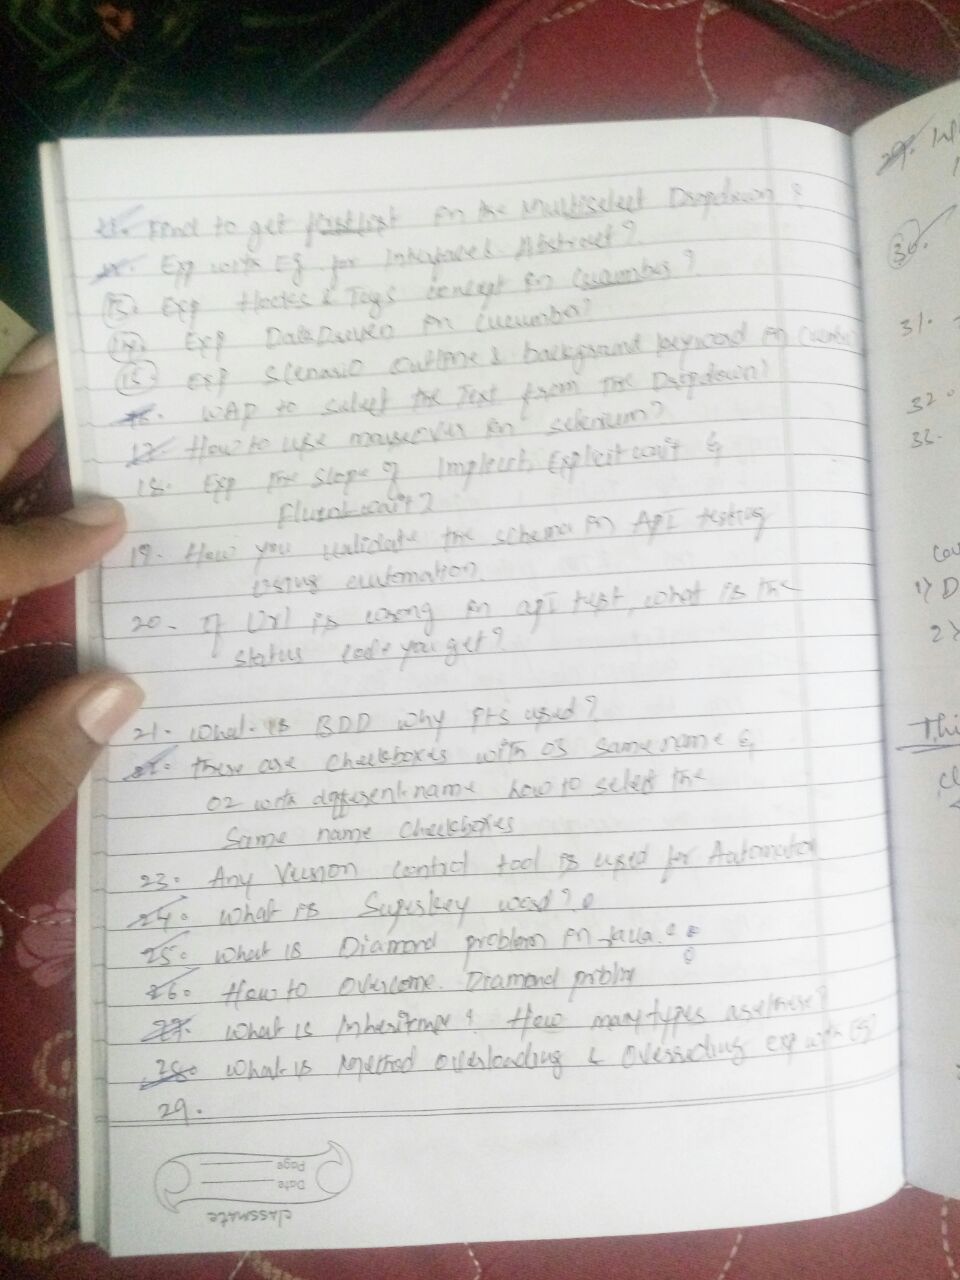 Find to get in the Multiselect Dropdown ?
Exp with Eg for Interface & Abstract ?
13. Exp Hooks & Tags concept in Cucumber ?
14. Exp Data Driven in Cucumber?
15. Exp Scenario outline & background keyword in
16. WAP to select the Text from the Dropdown?
17. How to use mouseover in selenium?
18. Exp the Slope of Implicit, Explicit wait &
Fluent wait?
19. How you validate the schema in API testing
using automation
20. If Url is wrong in api test, what is the
status code you get?
21. What is BDD why its used?
22. there are checkboxes with 03 same name &
02 with different name how to select the
Same name checkboxes
23. Any Version control tool is used for Automation
24. what is Superkey word?
25. what is Diamond problem in Java.
26. How to Overcome. Diamond problm
27. what is Inheritence ? How many types as these?
28. what is Method overloading & Overriding exp with Eg?
29.
classmate
Date
Page
29.
30.
31.
32.
33.
1)
2)